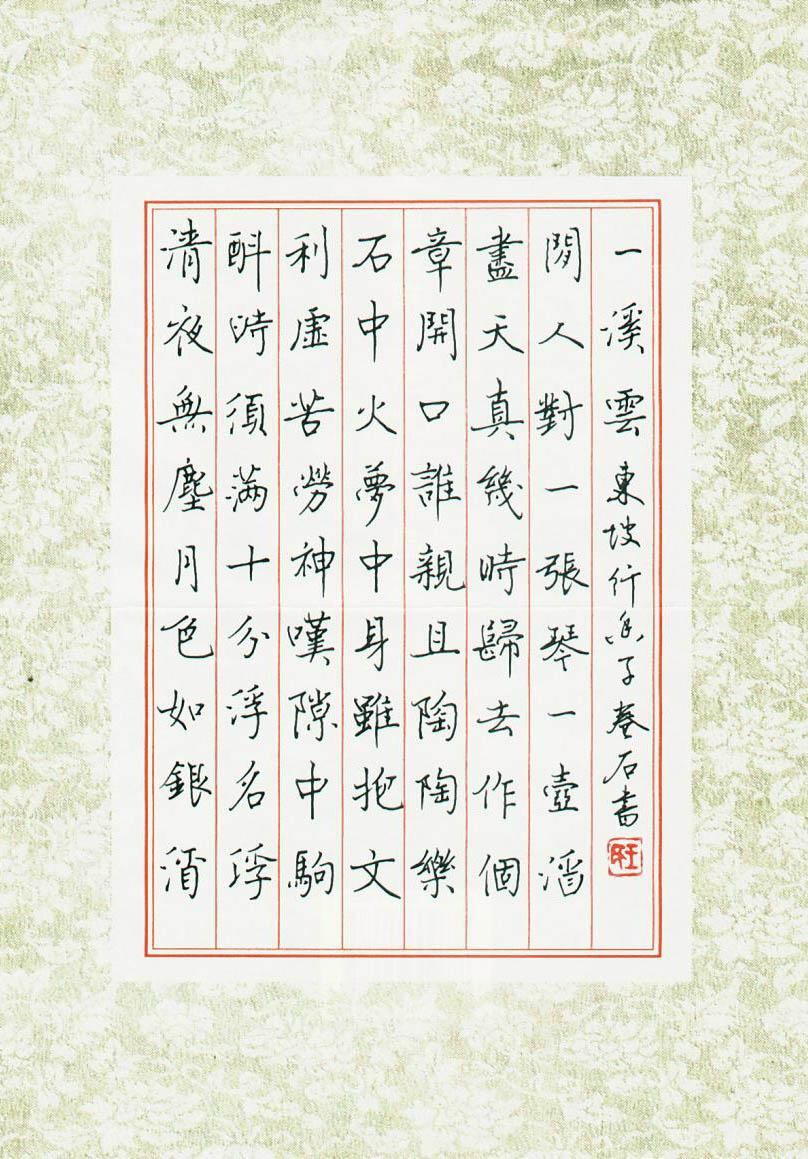 清夜無塵月色如銀酒
斟時須滿十分浮名浮
利虛苦勞神嘆隙中駒
石中火夢中身雖抱文
章開口誰親且陶陶樂
盡天真幾時歸去作個
閒人對一張琴一壺酒
一溪雲 東坡行香子 卷石書